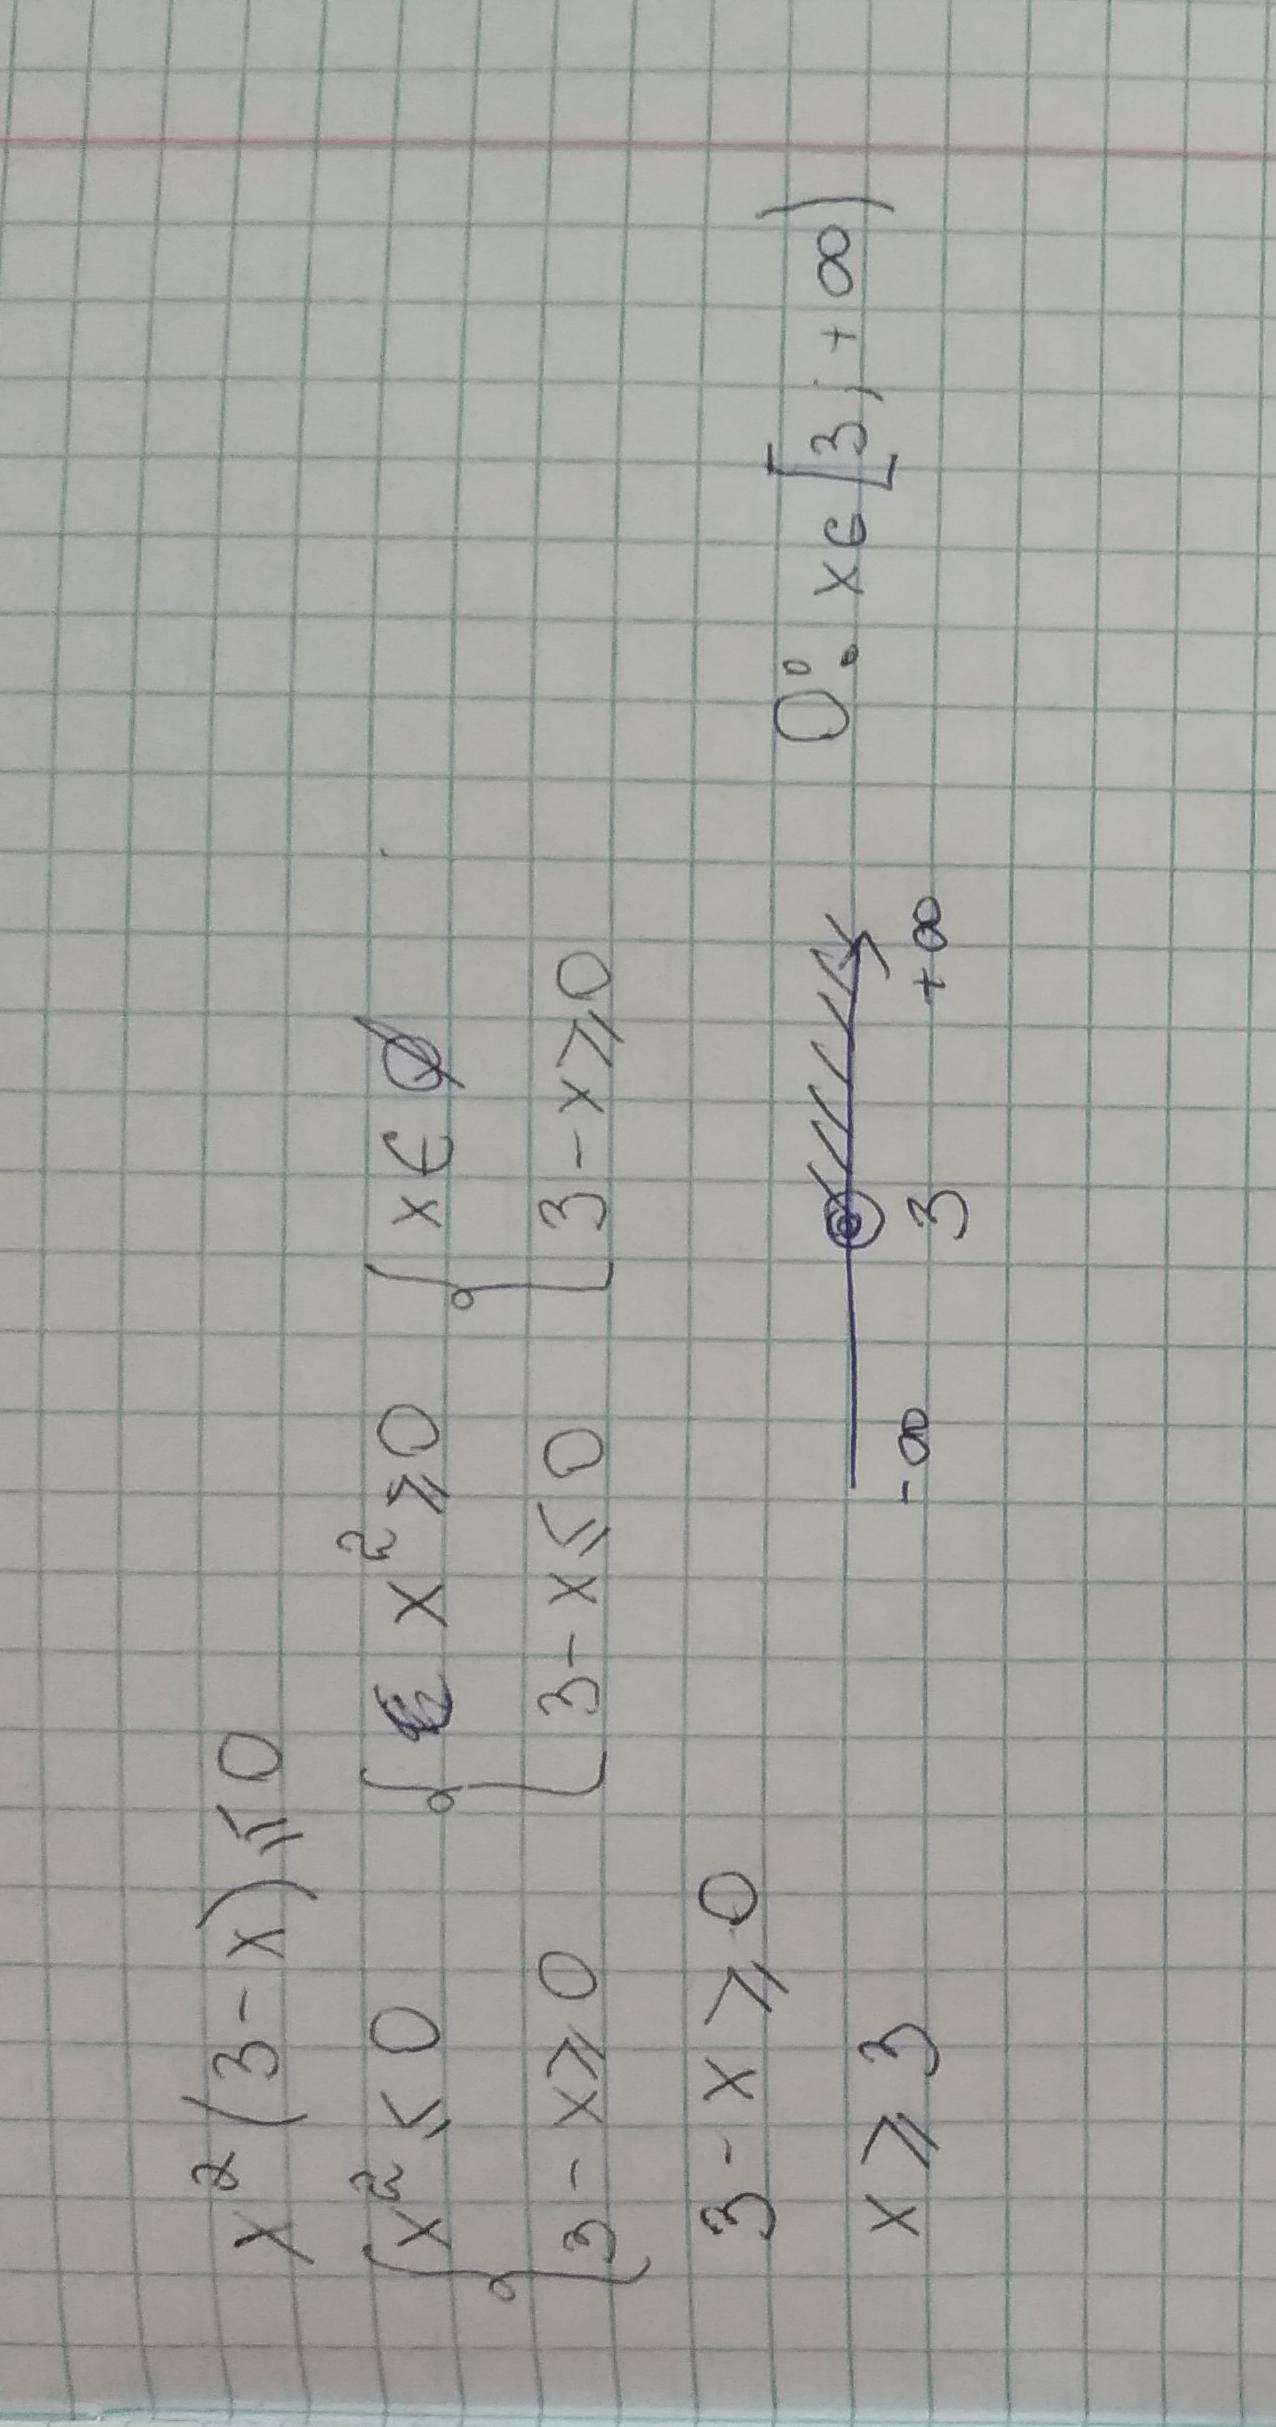 x²(3-x)⩽0
{x²⩽0 {x²⩾0 {x∈∅
{3-x⩾0 {3-x⩽0 {3-x⩾0
3-x⩾0
x⩾3 -∞ 3 +∞ O: x∈[3;+∞)